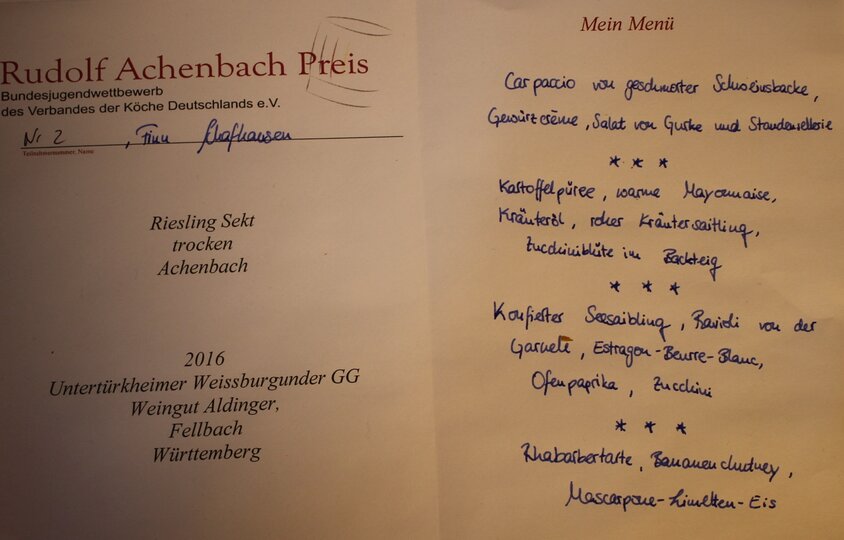 Rudolf Achenbach Preis
Bundesjugendwettbewerb
des Verbandes der Köche Deutschlands e.V.
Nr 2 , Finn Schafhausen
Teilnehmernummer, Name
Riesling Sekt
trocken
Achenbach
2016
Untertürkheimer Weissburgunder GG
Weingut Aldinger,
Fellbach
Württemberg
Mein Menü
Carpaccio von geschmorter Schweinsbacke,
Gewürzcrème, Salat von Gurke und Staudensellerie
* * *
Kartoffelpüree, warme Mayonnaise,
Kräuteröl, roher Kräutersaitling,
Zucchiniblüte im Backteig
* * *
Konfierter Seesaibling, Ravioli von der
Garnele, Estragon-Beurre-Blanc,
Ofenpaprika, Zucchini
* * *
Rhabarbertarte, Bananenchutney,
Mascarpone-Limetten-Eis